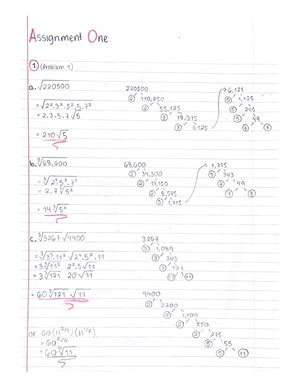 Assignment One
① (Problem 1)
a. √220500
= √2².3².5³.7²
= 2.3.5.7√5
= 210√5
220500
② 110,250
② 55,125
③ 18,375
③ 6,125
6,125
⑤ 1,225
⑤ 245
⑤ 49
⑦ ⑦
b. ∛68,600
= ∛2³.5².7³
= 2.7∛5²
= 14∛5²
68,600
② 34,300
② 17,150
② 8,575
⑤ 1,715
1,715
⑤ 343
⑦ 49
⑦ ⑦
c. ∛3267 . √4400
= ∛3³.11² . √2⁴.5².11
= 3∛11² 2².5√11
= 3∛121 20√11
= 60∛121 √11
3267
③ 1,089
③ 363
③ 121
⑪ ⑪
4400
② 2200
② 1,100
② 550
② 275
⑤ 55
⑤ ⑪
or 60(11^2/3)(11^1/2)